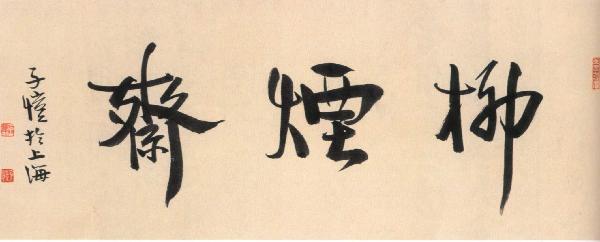 柳煙齋
子愷於上海